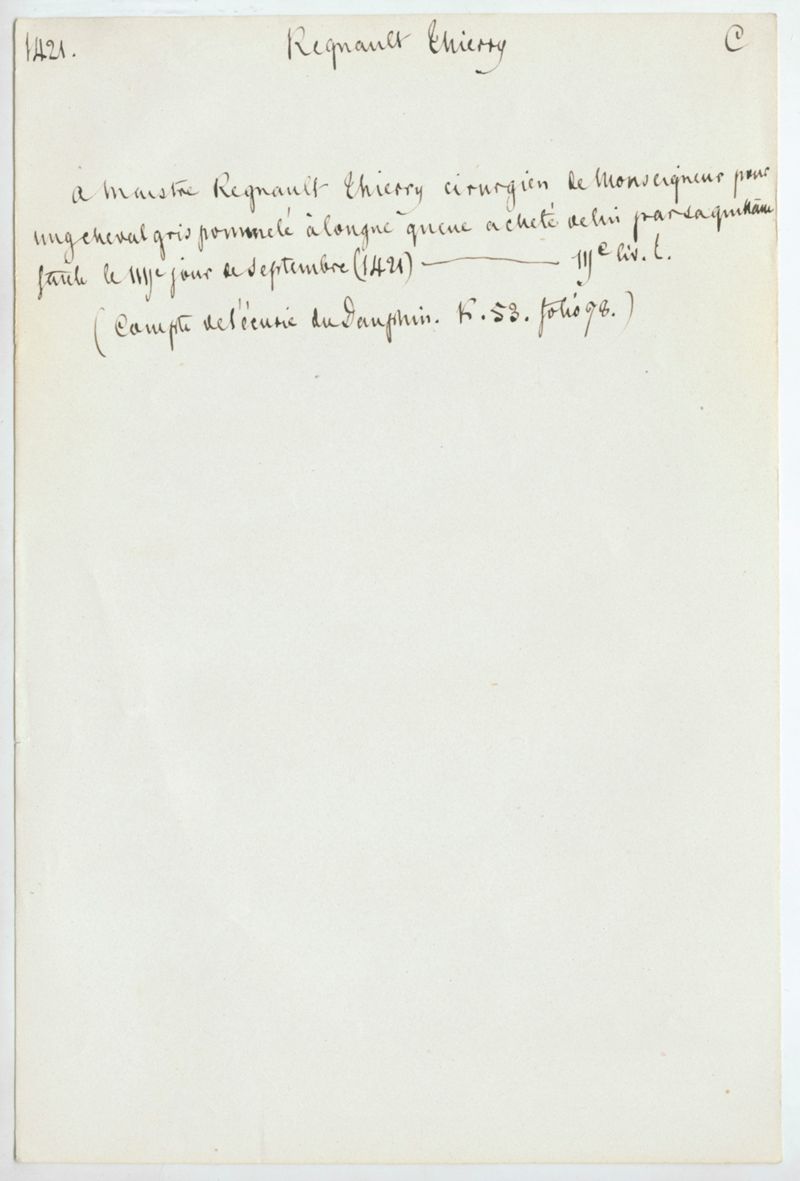 1421. Regnault Thierry C
A Maistre Regnault Thierry cirurgien de Monseigneur pour
ung cheval gris pommelé à longue queue acheté de lui par sa quittance
faite le jour de Septembre (1421) — liv. t.
(Compte de l'écurie du Dauphin. K. 53. folio 98.)